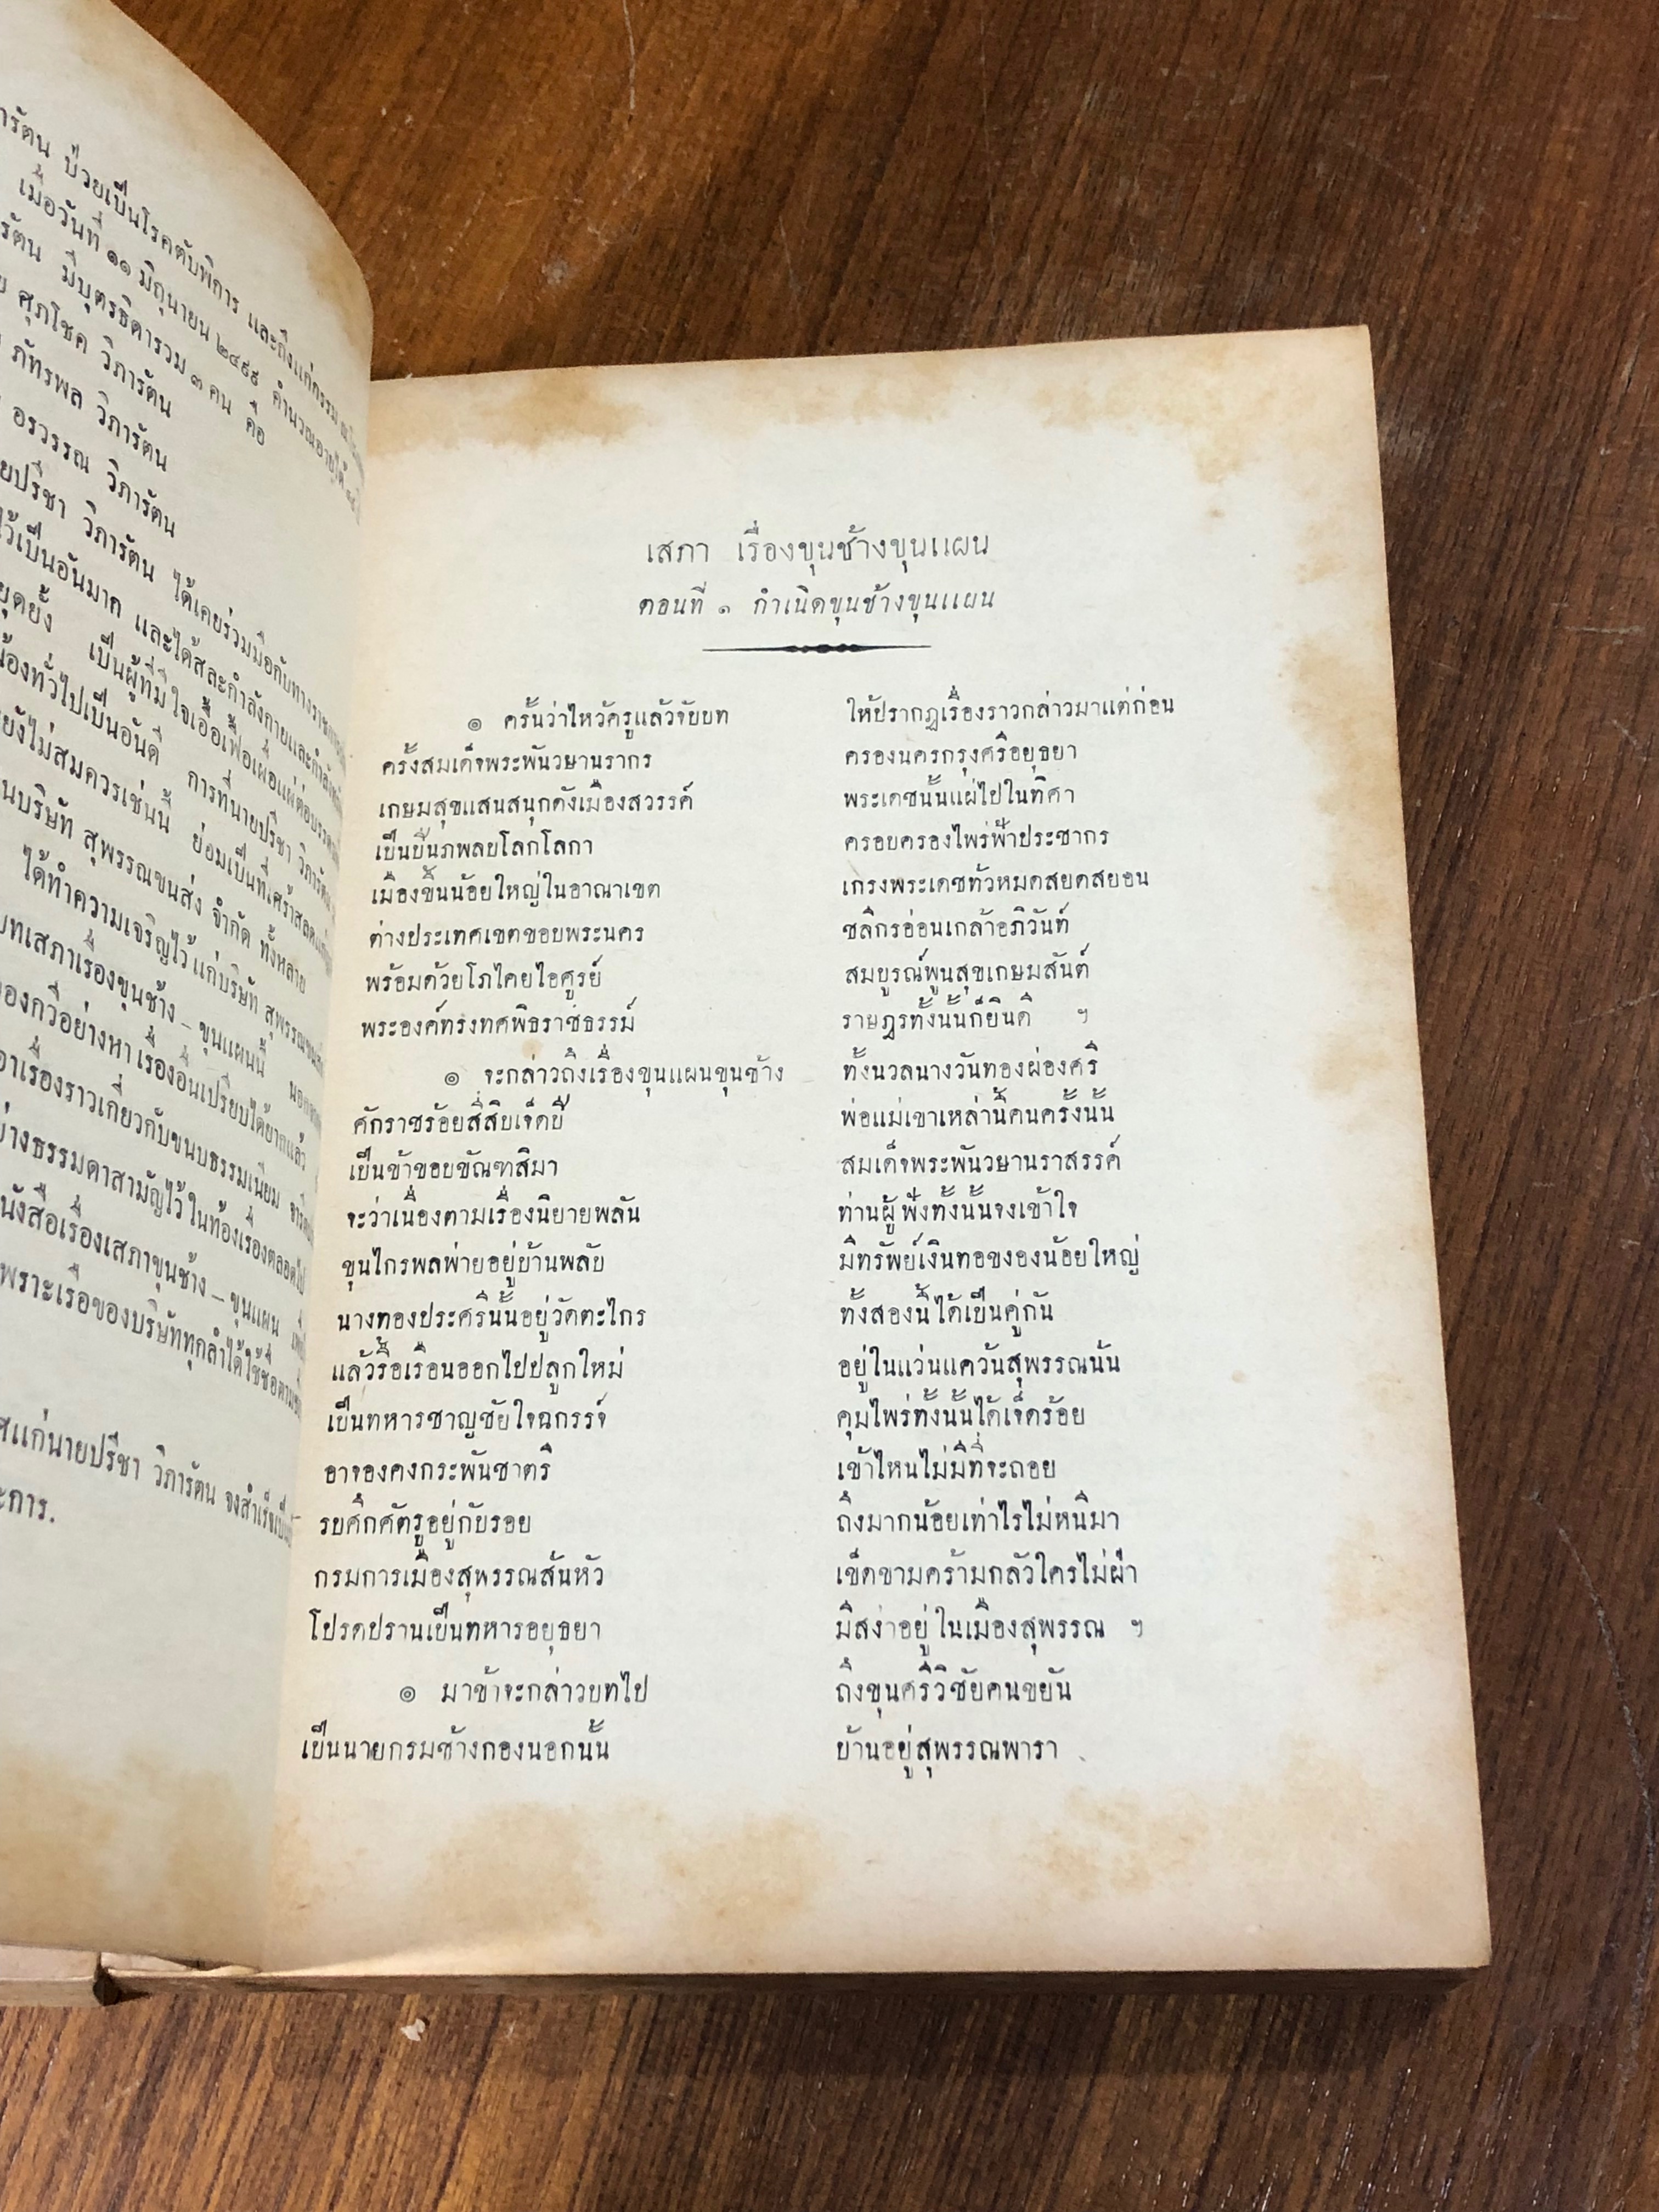 ารัตน ป่วยเป็นโรคตับพิการ และถึงแก่กรรม
เมื่อวันที่ ๑๑ มิถุนายน ๒๔๙๙ คำนวณอายุได้
รัตน มีบุตรธิดารวม ๓ คน คือ
ศุภโชค วิภารัตน
ภัทรพล วิภารัตน
อรวรรณ วิภารัตน
ยปรีชา วิภารัตน ได้เคยร่วมมือกับทางราช
ไว้เป็นอันมาก และได้สละกำลังกายและกำลัง
ยุดยั้ง เป็นผู้ที่มีใจเอื้อเฟื้อเผื่อแผ่ต่อบรรดา
น้องทั่วไปเป็นอันดี การที่นายปรีชา วิภารัตน
ยังไม่สมควรเช่นนี้ ย่อมเป็นที่เศร้าสลด
นบริษัท สุพรรณขนส่ง จำกัด ทั้งหลาย
ได้ทำความเจริญไว้แก่บริษัท สุพรรณขนส่ง
บทเสภาเรื่องขุนช้าง – ขุนแผนนี้ นอกจาก
องกวีอย่างหาเรื่องอื่นเปรียบได้ยากแล้ว
อาเรื่องราวเกี่ยวกับขนบธรรมเนียม จารีต
ย่างธรรมดาสามัญไว้ในท้องเรื่องตลอดไป
นังสือเรื่องเสภาขุนช้าง – ขุนแผน
พราะเรือของบริษัททุกลำได้ใช้ชื่อตาม
ศแก่นายปรีชา วิภารัตน จงสำเร็จเป็น
ะการ.
เสภา เรื่องขุนช้างขุนแผน
ตอนที่ ๑ กำเนิดขุนช้างขุนแผน
๏ ครั้นว่าไหว้ครูแล้วจับบท ให้ปรากฏเรื่องราวกล่าวมาแต่ก่อน
ครั้งสมเด็จพระพันวษานรากร ครองนครกรุงศรีอยุธยา
เกษมสุขแสนสนุกดังเมืองสวรรค์ พระเดชนั้นแผ่ไปในทิศา
เป็นปิ่นภพลบโลกโลกา ครอบครองไพร่ฟ้าประชากร
เมืองขึ้นน้อยใหญ่ในอาณาเขต เกรงพระเดชทั่วหมดสยดสยอน
ต่างประเทศเขตขอบพระนคร ชลีกรอ่อนเกล้าอภิวันท์
พร้อมด้วยโภไคยไอศูรย์ สมบูรณ์พูนสุขเกษมสันต์
พระองค์ทรงทศพิธราชธรรม์ ราษฎรทั้งนั้นก็ยินดี ฯ
๏ จะกล่าวถึงเรื่องขุนแผนขุนช้าง ทั้งนวลนางวันทองผ่องศรี
ศักราชร้อยสี่สิบเจ็ดปี พ่อแม่เขาเหล่านี้คนครั้งนั้น
เป็นข้าขอบขัณฑสิมา สมเด็จพระพันวษานราสรรค์
จะว่าเนื่องตามเรื่องนิยายพลัน ท่านผู้ฟังทั้งนั้นจงเข้าใจ
ขุนไกรพลพ่ายอยู่บ้านพลับ มีทรัพย์เงินทอของน้อยใหญ่
นางทองประศรีนั้นอยู่วัดตะไกร ทั้งสองนี้ได้เป็นคู่กัน
แล้วรื้อเรือนออกไปปลูกใหม่ อยู่ในแว่นแคว้นสุพรรณนั่น
เป็นทหารชาญชัยใจฉกรรจ์ คุมไพร่ทั้งนั้นได้เจ็ดร้อย
อาจองคงกระพันชาตรี เข้าไหนไม่มีที่จะถอย
รบศึกศัตรูอยู่กับรอย ถึงมากน้อยเท่าไรไม่หนีมา
กรมการเมืองสุพรรณสั่นหัว เข็ดขามคร้ามกลัวใครไม่ฝ่า
โปรดปรานเป็นทหารอยุธยา มีสง่าอยู่ในเมืองสุพรรณ ฯ
๏ มาข้าจะกล่าวบทไป ถึงขุนศรีวิชัยคนขยัน
เป็นนายกรมช้างกองนอกนั้น บ้านอยู่สุพรรณพารา